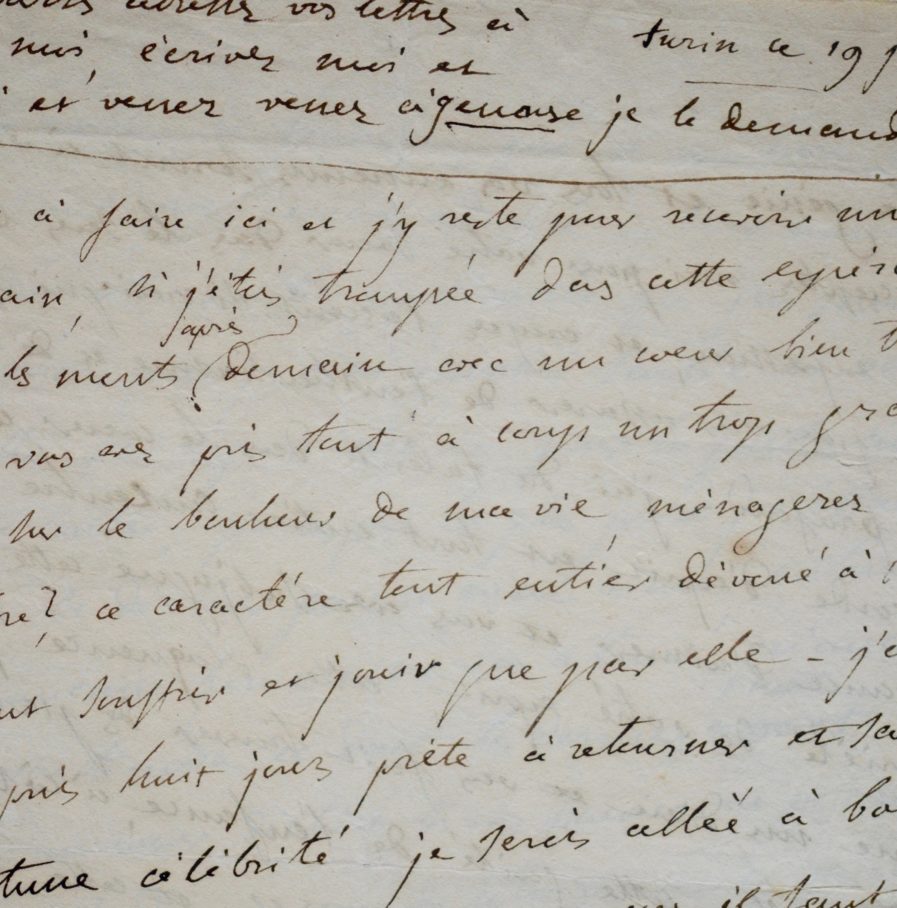 adressez vos lettres à
turin ce 19
moi, écrivez moi et
et venez venez à genève je le demand
à faire ici et j'y reste pour recevoir un
si j'étois trompée dans cette espér
les monts après demain avec un coeur bien t
vous avez pris tout à coup un trop gra
sur le bonheur de ma vie, ménagerez
ce caractére tout entier dévoué à
souffrir et jouir que par elle - j'
huit jours prète à retourner et
célébrité je serois alleé à
il faut